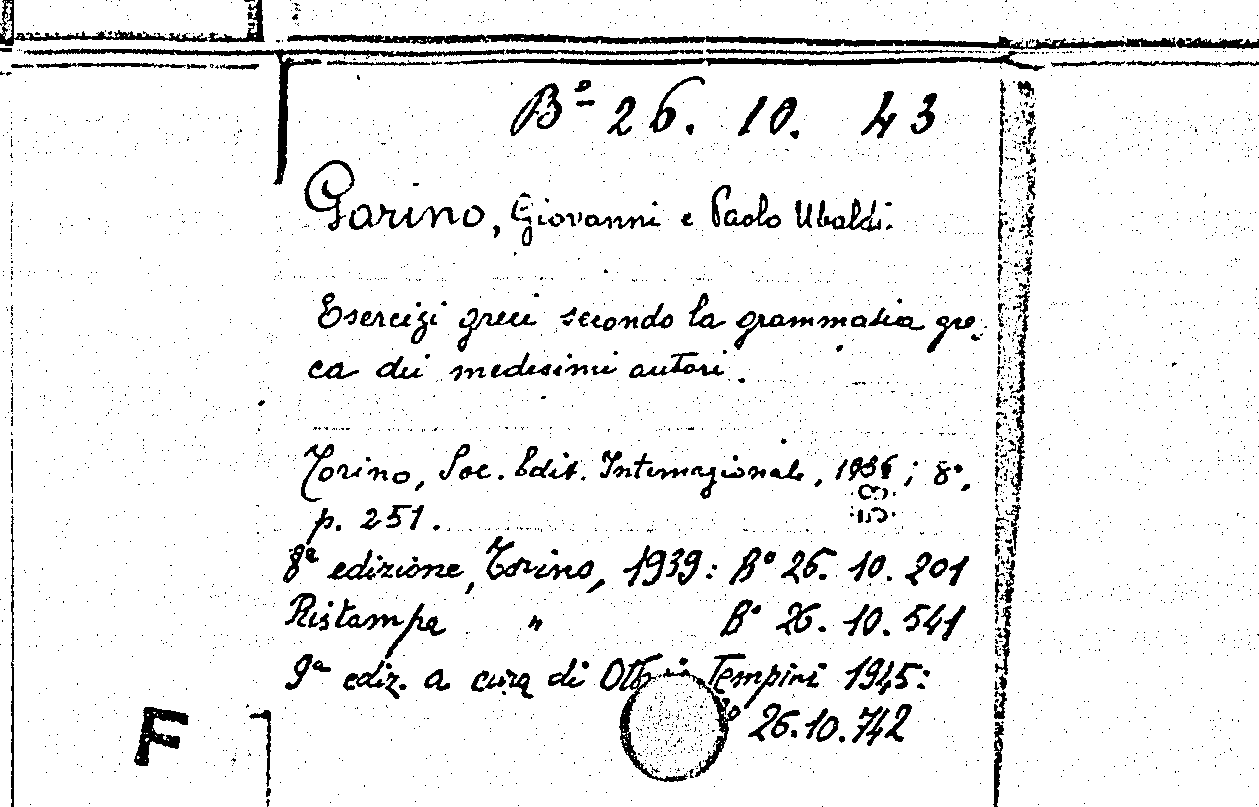 Bº 26. 10. 43
Garino, Giovanni e Paolo Ubaldi.
Esercizi greci secondo la grammatica gre-
ca dei medesimi autori.
Torino, Soc. Edit. Internazionale, 1936; 8º,
p. 251.
8ª edizione, Torino, 1939: Bº 26. 10. 201
Ristampa " Bº 26. 10. 541
9ª ediz. a cura di Tempini 1945:
26.10.742
F